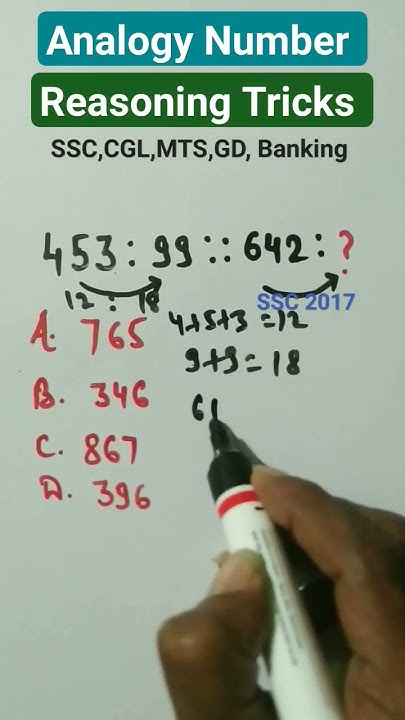 Analogy Number
Reasoning Tricks
SSC,CGL,MTS,GD, Banking
453 : 99 :: 642 : ?
12 : 18
SSC 2017
4+5+3 = 12
A. 765
9+9 = 18
B. 346
6
C. 867
D. 396